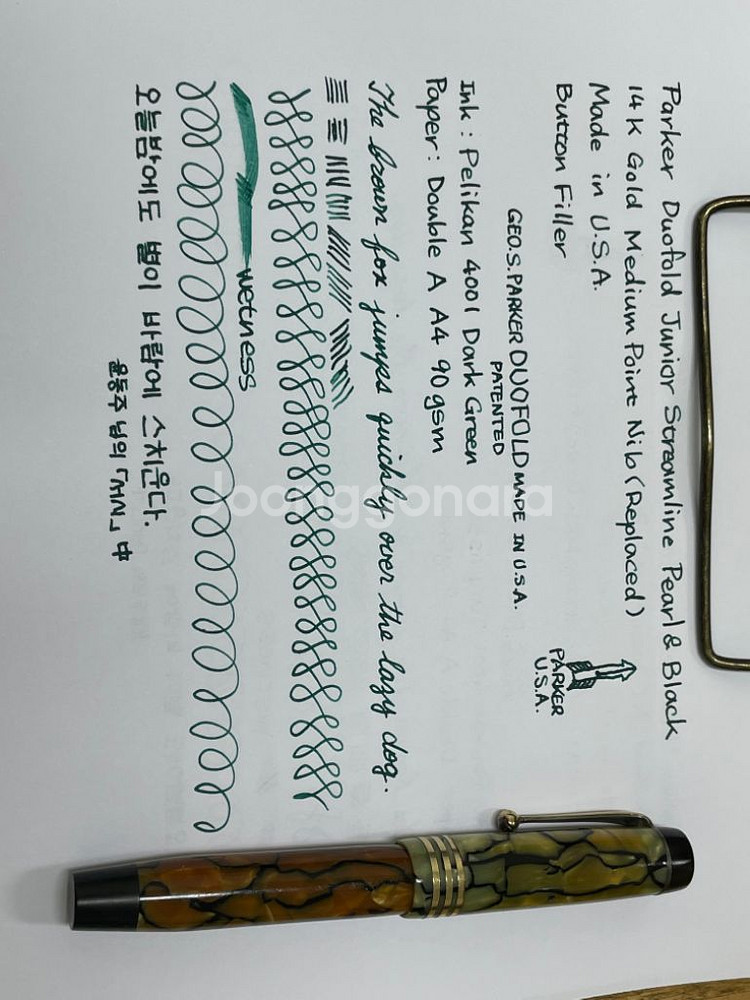 Parker Duofold Junior Streamline Pearl & Black
14K Gold Medium Point Nib (Replaced)
Made in U.S.A.
Button Filler
PARKER
U.S.A.
GEO.S.PARKER DUOFOLD MADE IN U.S.A.
PATENTED
Ink : Pelikan 4001 Dark Green
Paper: Double A A4 90gsm
The brown fox jumps quickly over the lazy dog.
wetness
오늘밤에도 별이 바람에 스치운다.
윤동주 님의 「서시」 中
Joonggonara